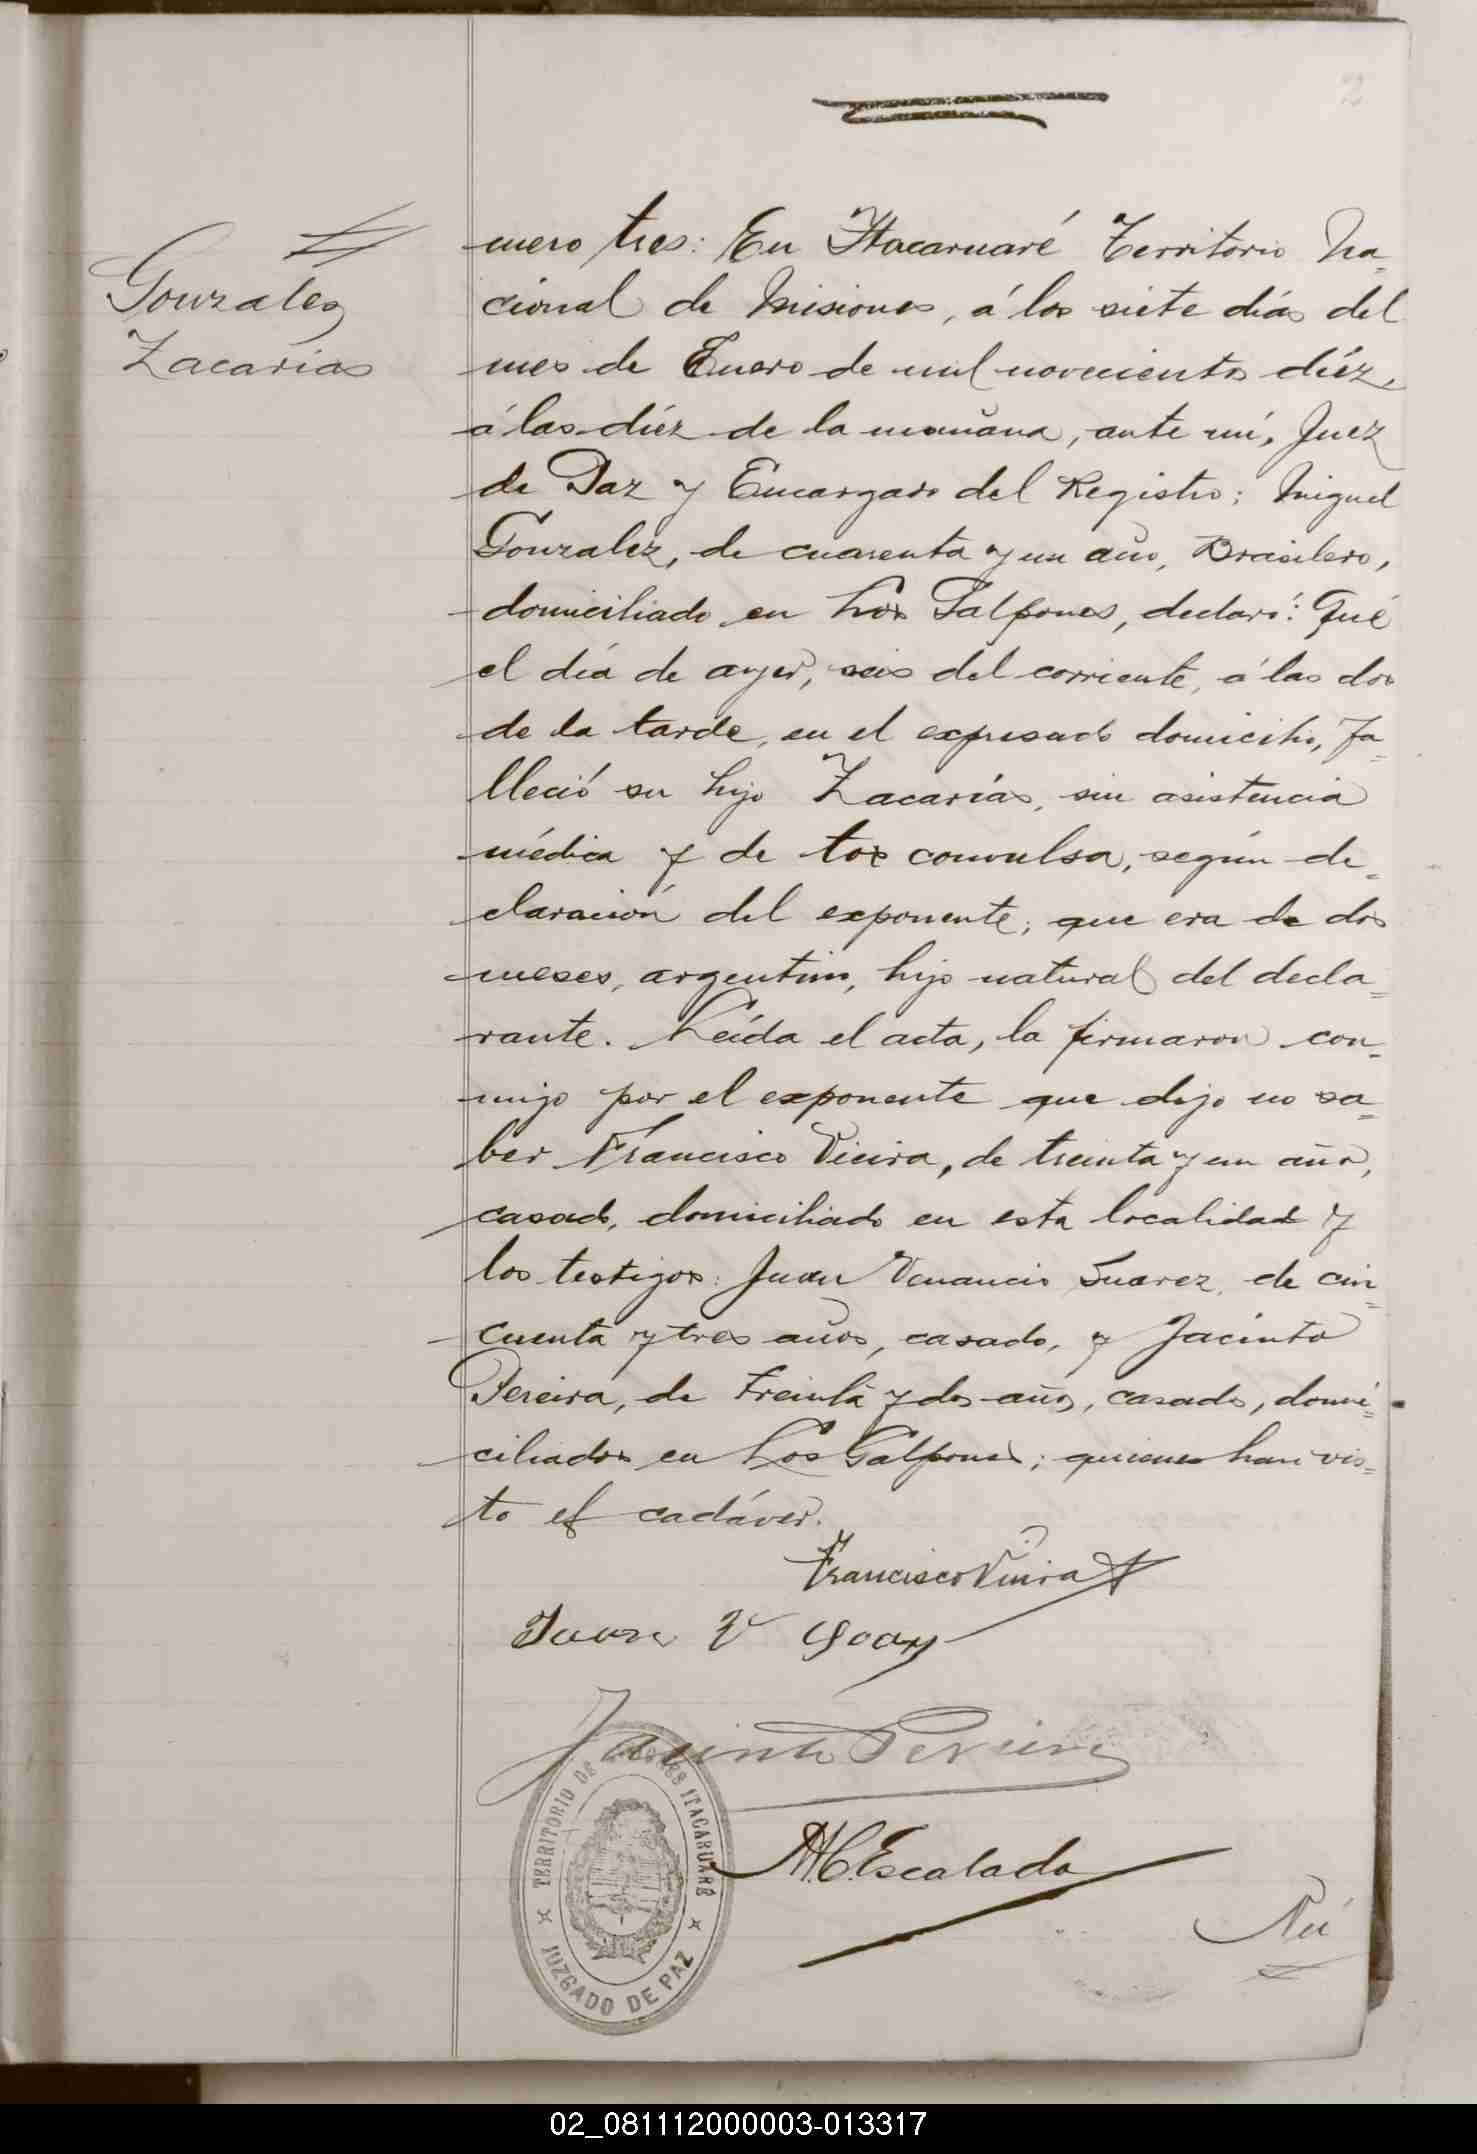 2
Gonzalez
Zacarias
mero tres: En Itacaruaré Territorio Na=
cional de Misiones, á los siete días del
mes de Enero de mil novecientos diéz,
á las diéz de la mañana, ante mí, Juez
de Paz y Encargado del Registro; Miguel
Gonzalez, de cuarenta y un año, Brasilero,
domiciliado en Los Galpones, declaró: Qué
el día de ayer, seis del corriente, á las dos
de la tarde, en el expresado domicilio, fa=
lleció su hijo Zacarías, sin asistencia
médica y de tos convulsa, según de=
claración del exponente; que era de dos
meses, argentino, hijo natural del decla=
rante. Leída el acta, la firmaron con=
migo por el exponente que dijo no sa=
ber Francisco Vieira, de treinta y un año,
casado, domiciliado en esta localidad y
los testigos: Juan Venancio Suarez, de cin=
cuenta y tres años, casado, y Jacinto
Pereira, de treinta y dos años, casado, domi=
ciliados en Los Galpones; quienes han vis=
to el cadáver.
Francisco Vieira
Jacinto Pereira
A.C. Escalada
TERRITORIO DE MISIONES ITACARUARÉ
JUZGADO DE PAZ
Nú
02_081112000003-013317